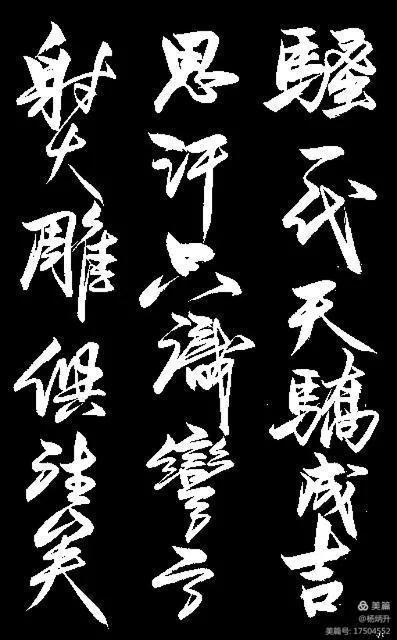 騷一代天驕成吉
思汗只識彎弓
射大雕俱往矣
美篇
@杨炳升
美篇号: 17504552